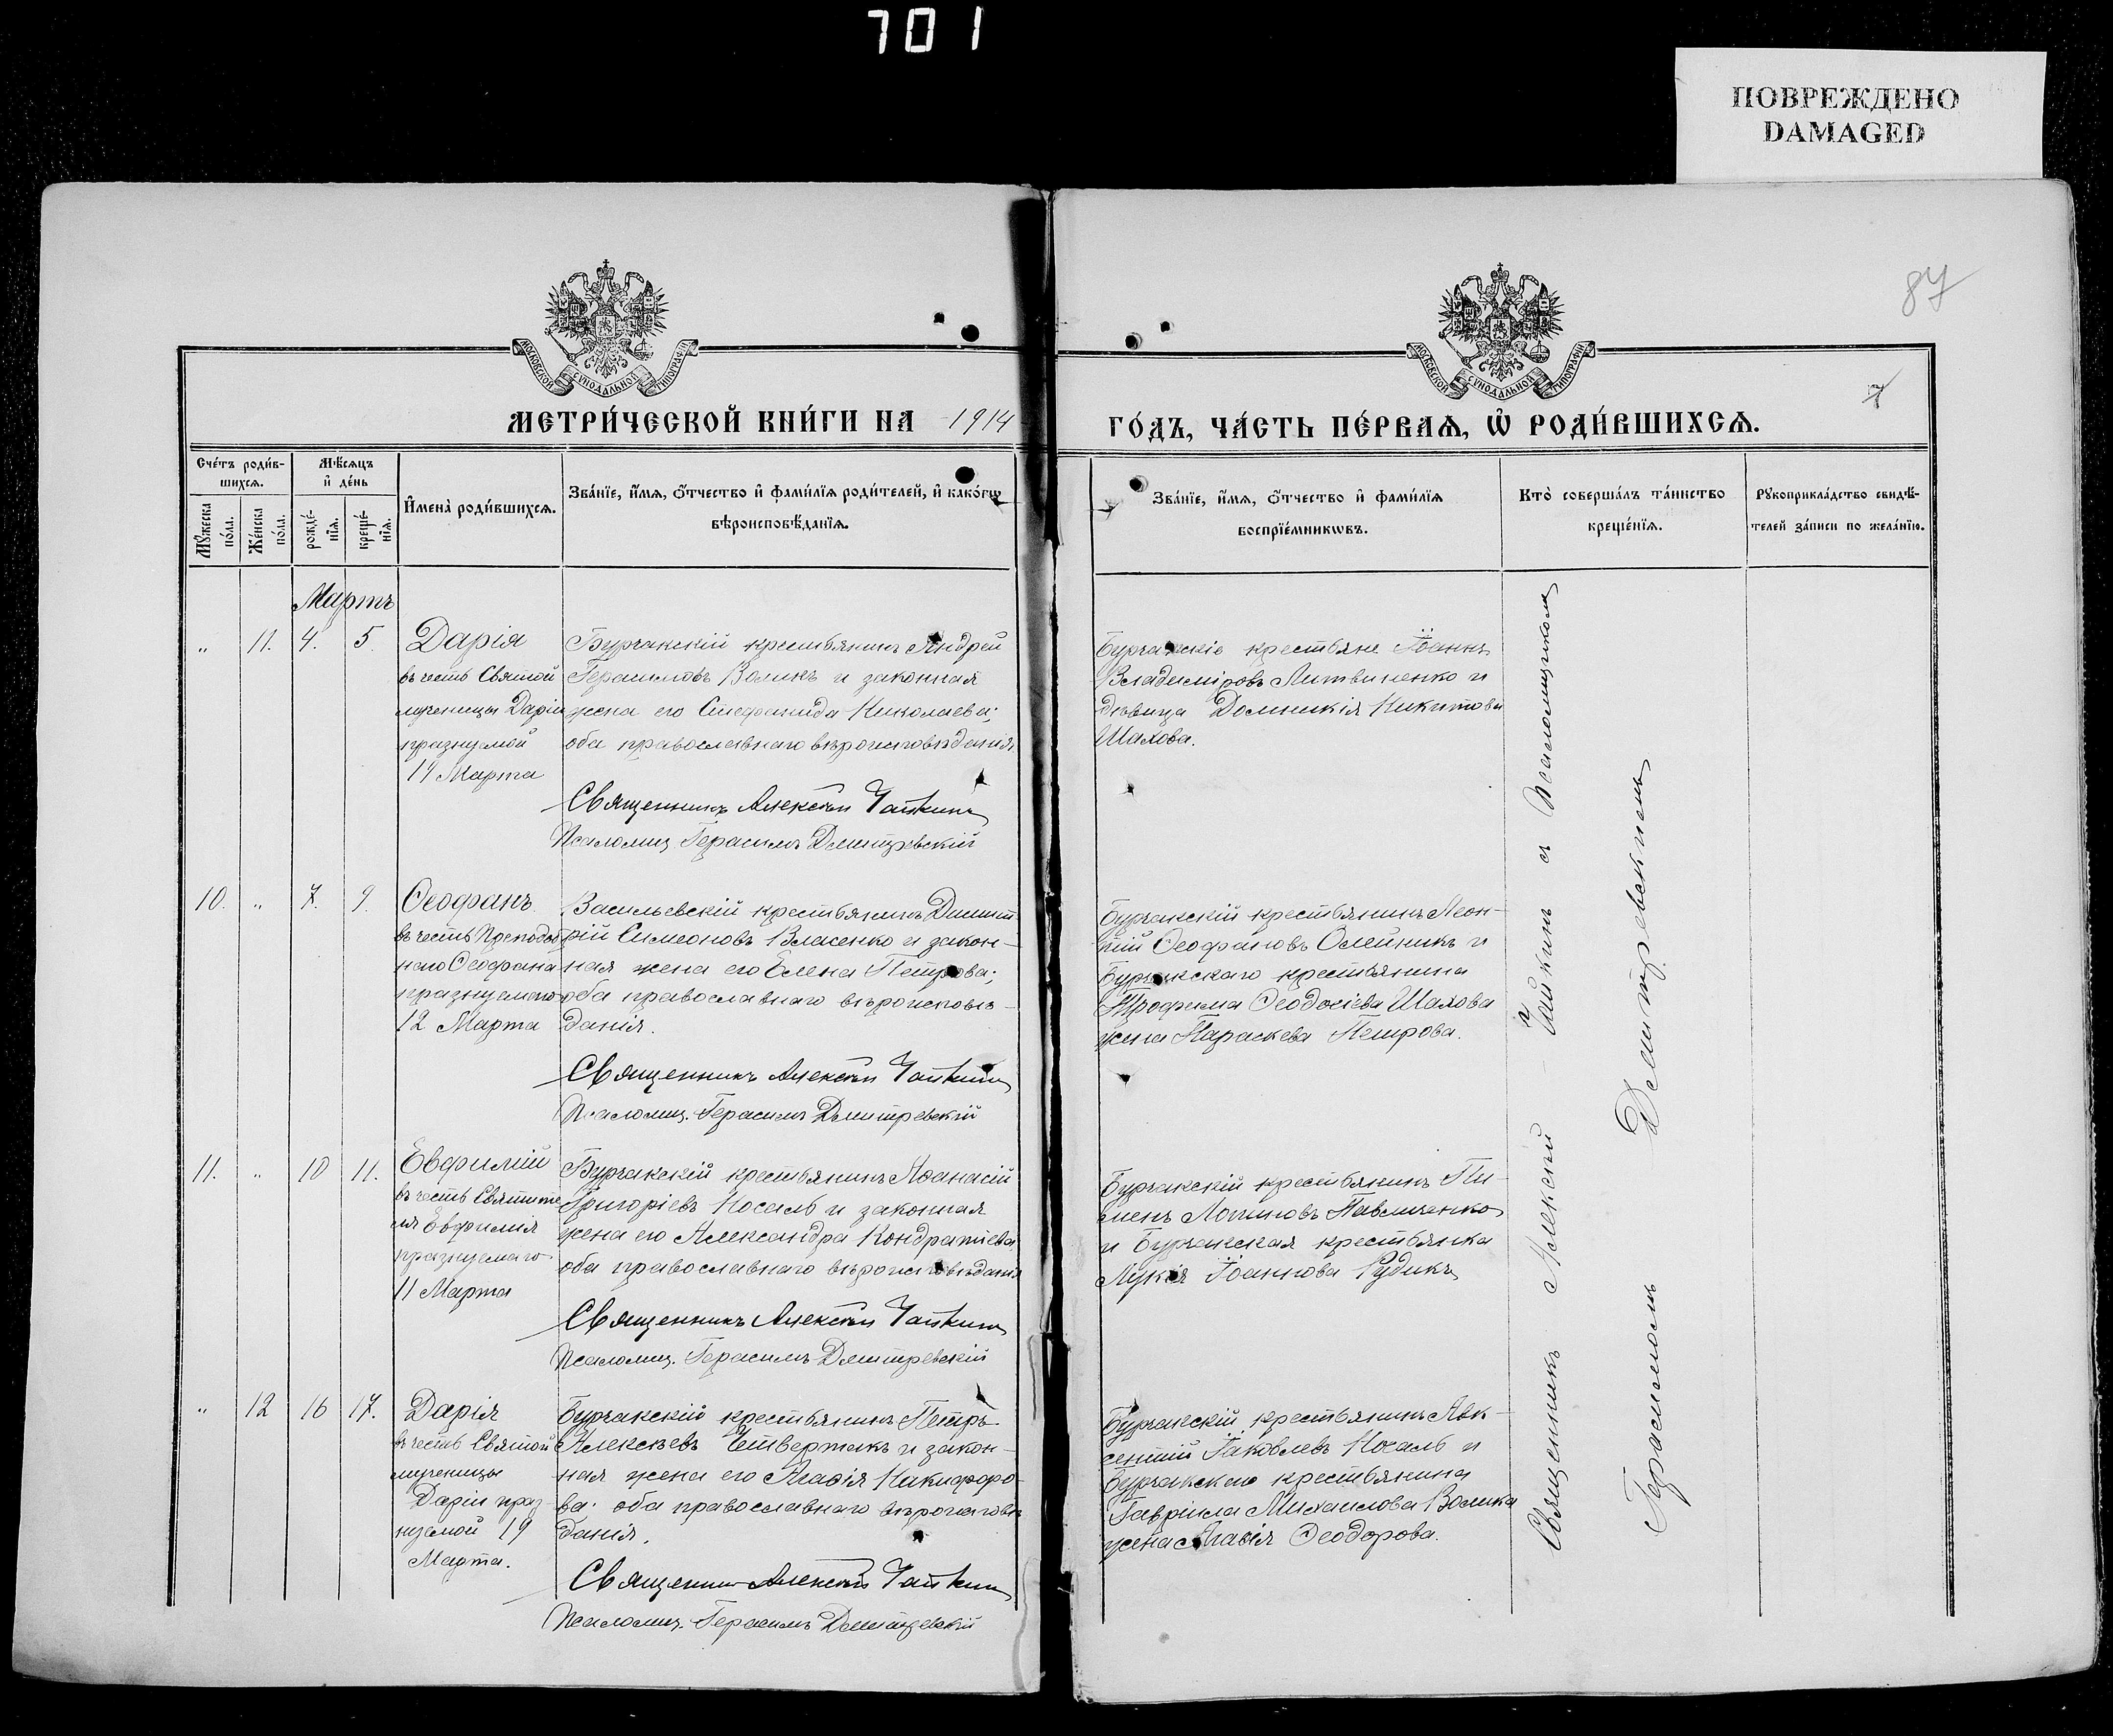 701
ПОВРЕЖДЕНО
DAMAGED
87
7
МОСКОВСКОЙ СѴНОДАЛЬНОЙ ТИПОГРАФІИ
МОСКОВСКОЙ СѴНОДАЛЬНОЙ ТИПОГРАФІИ
МЕТРИ́ЧЕСКОЙ КНИ́ГИ НА 1914
ГО́ДЪ, ЧА́СТЬ ПЕ́РВАѦ, Ѡ҆ РОДИ́ВШИХСѦ.
Сче́тъ роди́в-
шихсѧ.
Мꙋ́жеска по́ла.
Же́нска по́ла.
Мѣ́сѧцъ
и҆ де́нь
рожде́-
нїѧ.
креще́-
нїѧ.
И҆мена̀ роди́вшихсѧ.
Зва́нїе, и҆́мѧ, ѻ҆́тчество и҆ фами́лїѧ роди́телей, и҆ како́гѡ
вѣроисповѣ́данїѧ.
Зва́нїе, и҆́мѧ, ѻ҆́тчество и҆ фами́лїѧ
воспрїе́мникѡвъ.
Кто̀ соверша́лъ та́инство
креще́нїѧ.
Рꙋкоприкла́дство свидѣ́-
телей за́писи по жела́нїю.
Мартъ
„ 11. 4. 5.
Дарія
въ честь Святой
мученицы Даріи
празнуемой
19 Марта
Бурчакскій крестьянинъ Андрей
Герасимовъ Воликъ и законная
жена его Стефанида Николаева;
оба православнаго вѣроисповѣданія
Священникъ Алексѣй Чайкинъ
Псаломщ. Герасимъ Дмитревскій
Бурчакскіе крестьяне Іоаннъ
Владиміровъ Литвиненко и
дѣвица Домникія Никитова
Шахова.
10. „ 7. 9.
Ѳеофанъ
въ честь Преподоб
наго Ѳеофана
празнуемаго
12 Марта
Васильевскій крестьянинъ Димит
рій Симеоновъ Власенко и закон-
ная жена его Елена Петрова;
оба православнаго вѣроисповѣ-
данія.
Священникъ Алексѣй Чайкинъ
Псаломщ. Герасимъ Дмитревскій
Бурчакскій крестьянинъ Леон-
тій Ѳеофановъ Олейникъ и
Бурчакскаго крестьянина
Трофима Ѳеодосіева Шахова
жена Параскева Петрова.
11. „ 10 11.
Евфимій
въ честь Святите
ля Евфимія
празнуемаго
11 Марта
Бурчакскій крестьянинъ Аѳанасій
Григоріевъ Носаль и законная
жена его Александра Кондратіева
оба православнаго вѣроисповѣданія
Священникъ Алексѣй Чайкинъ
Псаломщ. Герасимъ Дмитревскій
Бурчакскій крестьянинъ Пи-
менъ Логиновъ Павличенко
и Бурчакская крестьянка
Лукія Іоаннова Рудикъ
„ 12 16 17.
Дарія
въ честь Святой
мученицы
Даріи праз-
нуемой 19
Марта.
Бурчакскій крестьянинъ Петръ
Алексѣевъ Четвертакъ и закон-
ная жена его Агаѳія Никифоро-
ва; оба православнаго вѣроисповѣ
данія.
Священникъ Алексѣй Чайкинъ
Псаломщ. Герасимъ Дмитревскій
Бурчакскій крестьянинъ Авк-
сентій Іаковлевъ Носаль и
Бурчакскаго крестьянина
Гавріила Михаилова Волика
жена Агаѳія Ѳеодорова.
Священникъ Алексѣй Чайкинъ съ Псаломщикомъ
Герасимомъ Дмитревскимъ